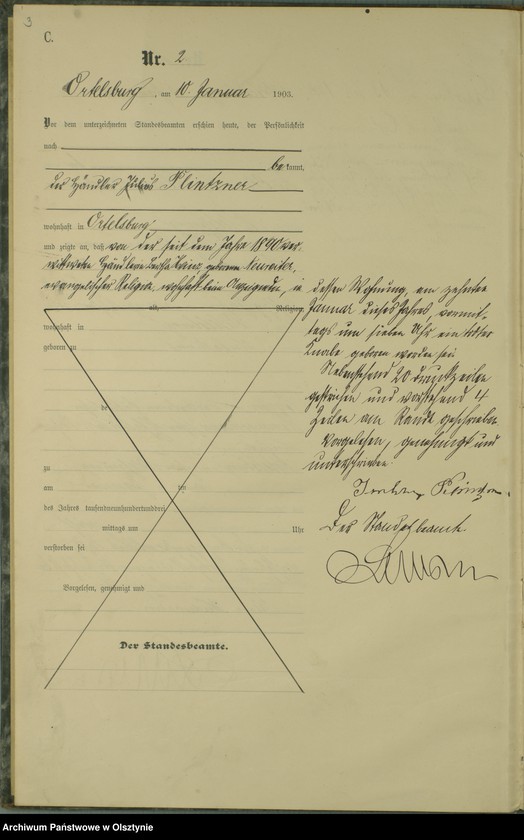 3
C.
Nr. 2
Ortelsburg, am 10. Januar 1903.
Vor dem unterzeichneten Standesbeamten erschien heute, der Persönlichkeit
nach
be kannt,
der Händler Julius Plintzner
wohnhaft in Ortelsburg
und zeigte an, daß von der seit dem Jahre 1890 ver-
witweten Händlerin geborene
evangelischer Religion, wohnhaft beim Anzeigenden, in
alt, Religion,
wohnhaft in
geboren zu
de
zu
am
des Jahres tausendneunhundertunddrei
mittags um Uhr
verstorben sei
Vorgelesen, genehmigt und
Der Standesbeamte.
dessen Wohnung, am zehnten
Januar dieses Jahres, vormit-
tags um sieben Uhr ein todter
Knabe geboren worden sei
Nebenstehend 20 Druckzeilen
gestrichen und vorstehend 4
Zeilen am Rande geschrieben
Vorgelesen, genehmigt und
unterschrieben.
Der Standesbeamte.
Archiwum Państwowe w Olsztynie